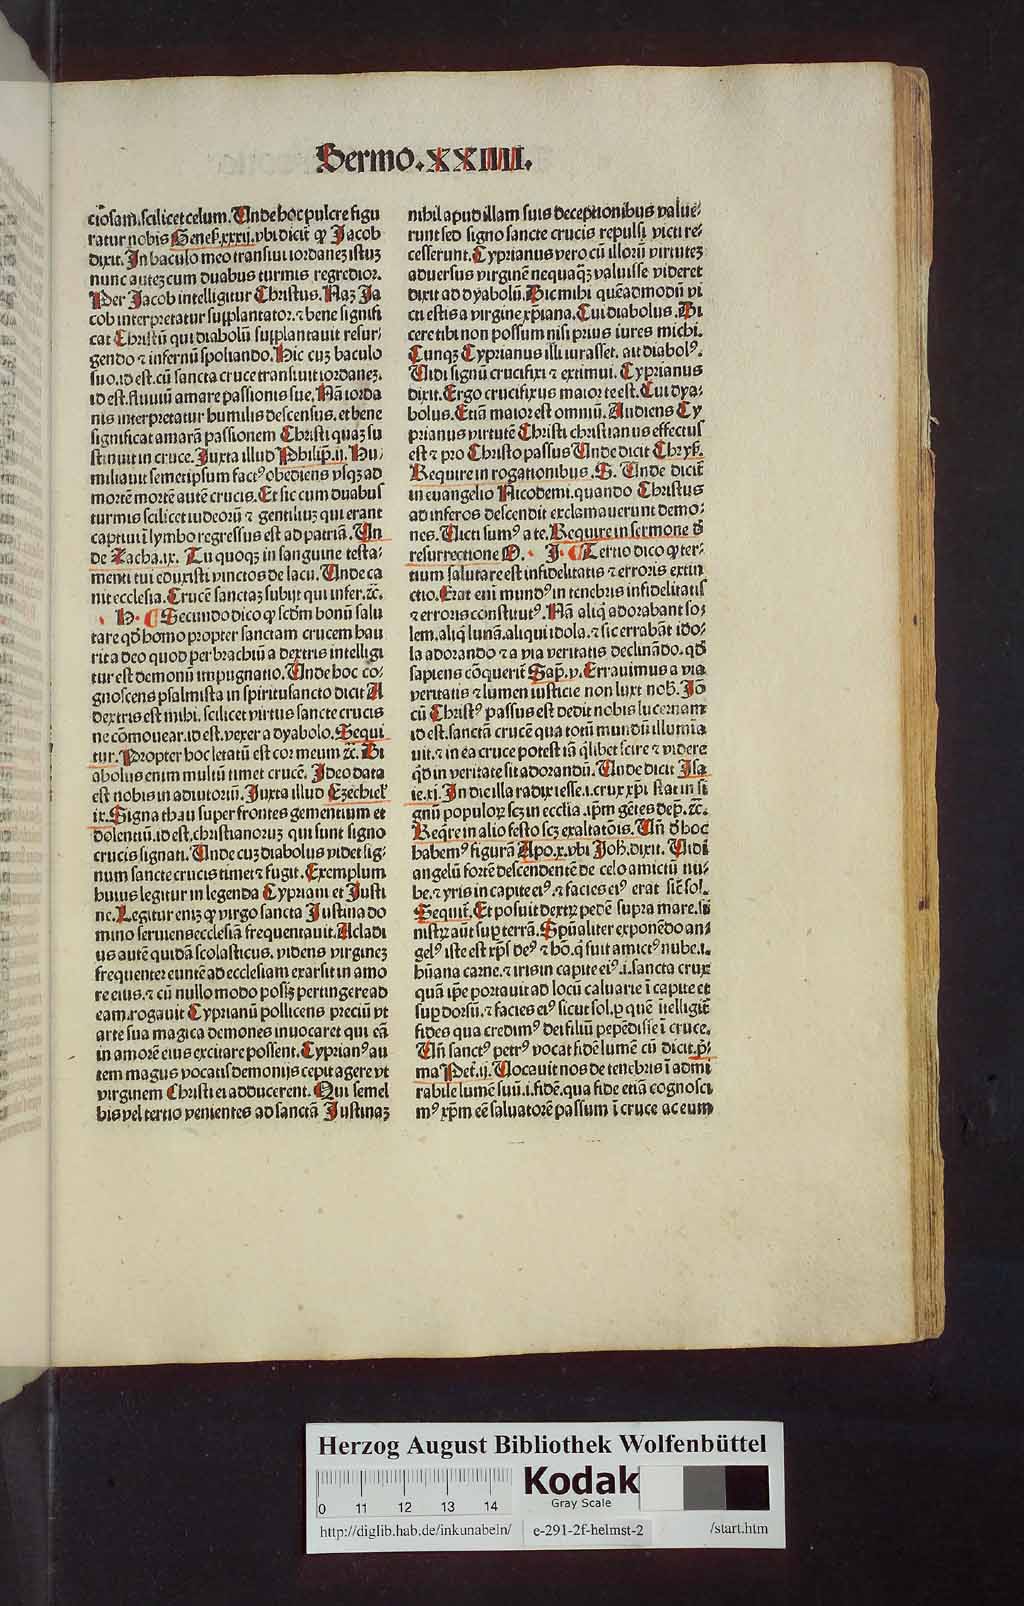 Sermo.XXIIII.
ciosam.scilicet celum. Unde hoc pulcre figu
ratur nobis Genes̃.xxxij.vbi dicit̃ ꝙ Jacob
dixit. In baculo meo transiui iordaneꝫ istuꝫ
nunc auteꝫ cum duabus turmis regredior.
Per Jacob intelligitur Christus. Naꝫ Ja
cob interpretatur supplantator. ⁊ bene signifi
cat Christũ qui diabolũ supplantauit resur⸗
gendo ⁊ infernũ spoliando. Hic cuꝫ baculo
suo.id est.cũ sancta cruce transiuit iordaneꝫ.
id est.fluuiũ amare passionis sue. Nã iorda
nis interpretatur humilis descensus. et bene
significat amarã passionem Christi quaꝫ su
stinuit in cruce. Juxta illud Philip̃.ij. Hu⸗
miliauit semetipsum factꝰ obediens vsqꝫ ad
mortẽ mortẽ autẽ crucis. Et sic cum duabus
turmis scilicet iudeorũ ⁊ gentiliuꝫ qui erant
captiui ĩ lymbo regressus est ad patriã. Un
de Zacha.ix. Tu quoqꝫ in sanguine testa⸗
menti tui eduxisti vinctos de lacu. Unde ca
nit ecclesia. Crucẽ sanctaꝫ subijt qui infer.⁊c̃.
H. Secundo dico ꝙ scd̃m bonũ salu
tare qd̕ homo propter sanctam crucem hau
rit a deo quod per brachiũ a dextris intelligi
tur est demonũ impugnatio. Unde hoc co⸗
gnoscens psalmista in spiritusancto dicit A
dextris est mihi. scilicet virtus sancte crucis
ne cõmouear.id est.vexer a dyabolo. Sequi
tur. Propter hoc letatũ est cor meum ⁊c̃. Di
abolus enim multũ timet crucẽ. Ideo data
est nobis in adiutoriũ. Juxta illud Ezechiel̕
ix. Signa thau super frontes gementium et
dolentiũ.id est.christianoruꝫ qui sunt signo
crucis signati. Unde cuꝫ diabolus videt sig⸗
num sancte crucis timet ⁊ fugit. Exemplum
huius legitur in legenda Cypriani et Justi
ne. Legitur enīꝫ ꝙ virgo sancta Justina do
mino seruiens ecclesiã frequentauit. Acladi
us autẽ quidã scolasticus. videns virgineꝫ
frequenter euntẽ ad ecclesiam exarsit in amo
re eius. ⁊ cũ nullo modo posſꝫ pertingere ad
eam.rogauit Cyprianũ pollicens preciũ vt
arte sua magica demones inuocaret qui eã
in amorẽ eius excitare possent. Cyprianꝰ au
tem magus vocatis demonijs cepit agere vt
virginem Christi ei adducerent. Qui semel
bis vel tertio venientes ad sanctã Justinaꝫ
nihil apud illam suis deceptionibus value⸗
runt sed signo sancte crucis repulsi victi re⸗
cesserunt. Cyprianus vero cũ illorũ virtuteꝫ
aduersus virginẽ nequaqꝫ valuisse videret
dixit ad dyabolũ. Dic mihi quẽadmodũ vi
cti estis a virgine xp̃iana. Cui diabolus. Di
cere tibi non possum nisi prius iures michi.
Cunqꝫ Cyprianus illi iurasset. ait diabolꝰ.
Uidi signũ crucifixi ⁊ extimui. Cyprianus
dixit. Ergo crucifixus maior te est. Cui dya⸗
bolus. Etiã maior est omniũ. Audiens Cy
prianus virtutẽ Christi christianus effectus
est ⁊ pro Christo passus Unde dicit Chrys̃.
Require in rogationibus. S. Unde dicit̃
in euangelio Nicodemi.quando Christus
ad inferos descendit exclamauerunt demo⸗
nes. Uicti sumꝰ a te. Require in sermone d̕
resurrectione O. J. Tertio dico ꝙ ter⸗
tium salutare est infidelitatis ⁊ erroris extin
ctio. Erat eni mundꝰ in tenebris infidelitatis
⁊ erroris constitutꝰ. Nã aliq̃ adorabant so⸗
lem.aliq̃ lunã.aliqui idola. ⁊ sic errabãt ido⸗
la adorando ⁊ a via veritatis declinãdo. qd̕
sapiens cõquerit̃ Sap̃.v. Errauimus a via
veritatis ⁊ lumen iusticie non luxit nob̃. Jõ
cũ Christꝰ passus est dedit nobis lucernam
id est.sanctã crucẽ qua totũ mundũ illumĩa
uit. ⁊ in ea cruce potest iã q̃libet scire ⁊ videre
qd̕ in veritate sit adorandũ. Unde dicit Isa
ie.xj. In die illa radix iesse.i.crux xp̃i stat in si
gnũ populoꝝ scꝫ in ecclĩa .ip̃m gẽtes dep̃. ⁊c̃.
Req̃re in alio festo scꝫ exaltatõis. Uñ d̕ hoc
habemꝰ figurã Apo.x.vbi Joh̃. dixit. Uidi
angelũ fortẽ descendentẽ de celo amictũ nu⸗
be. ⁊ yris in capite eiꝰ. ⁊ facies eiꝰ erat sic̃ sol.
Sequit̃. Et posuit dextꝝ pedẽ supra mare. si
nistꝝ aũt suꝑ terrã. Spũaliter exponẽdo an⸗
gelꝰ iste est xp̃s deꝰ ⁊ hõ. q̃ fuit amictꝰ nube.i.
hũana carne. ⁊ iris in capite eiꝰ.i.sancta crux
quã ip̃e portauit ad locũ caluarie ĩ capite et
suꝑ dorsũ. ⁊ facies eiꝰ sicut sol.ꝑ quẽ ĩtelligit̃
fides qua credimꝰ dei filiũ pepẽdisse ĩ cruce.
Uñ sanctꝰ petrꝰ vocat fidẽ lumẽ cũ dicit.p̃⸗
ma Pet̃.ij. Uocauit nos de tenebris ĩ admi
rabile lumẽ suũ.i.fidẽ.qua fide etiã cognosci
mꝰ xp̃m eẽ saluatorẽ passum ĩ cruce ac eum
Herzog August Bibliothek Wolfenbüttel
0 11 12 13 14
Kodak
Gray Scale
http://diglib.hab.de/inkunabeln/ e-291-2f-helmst-2 /start.htm